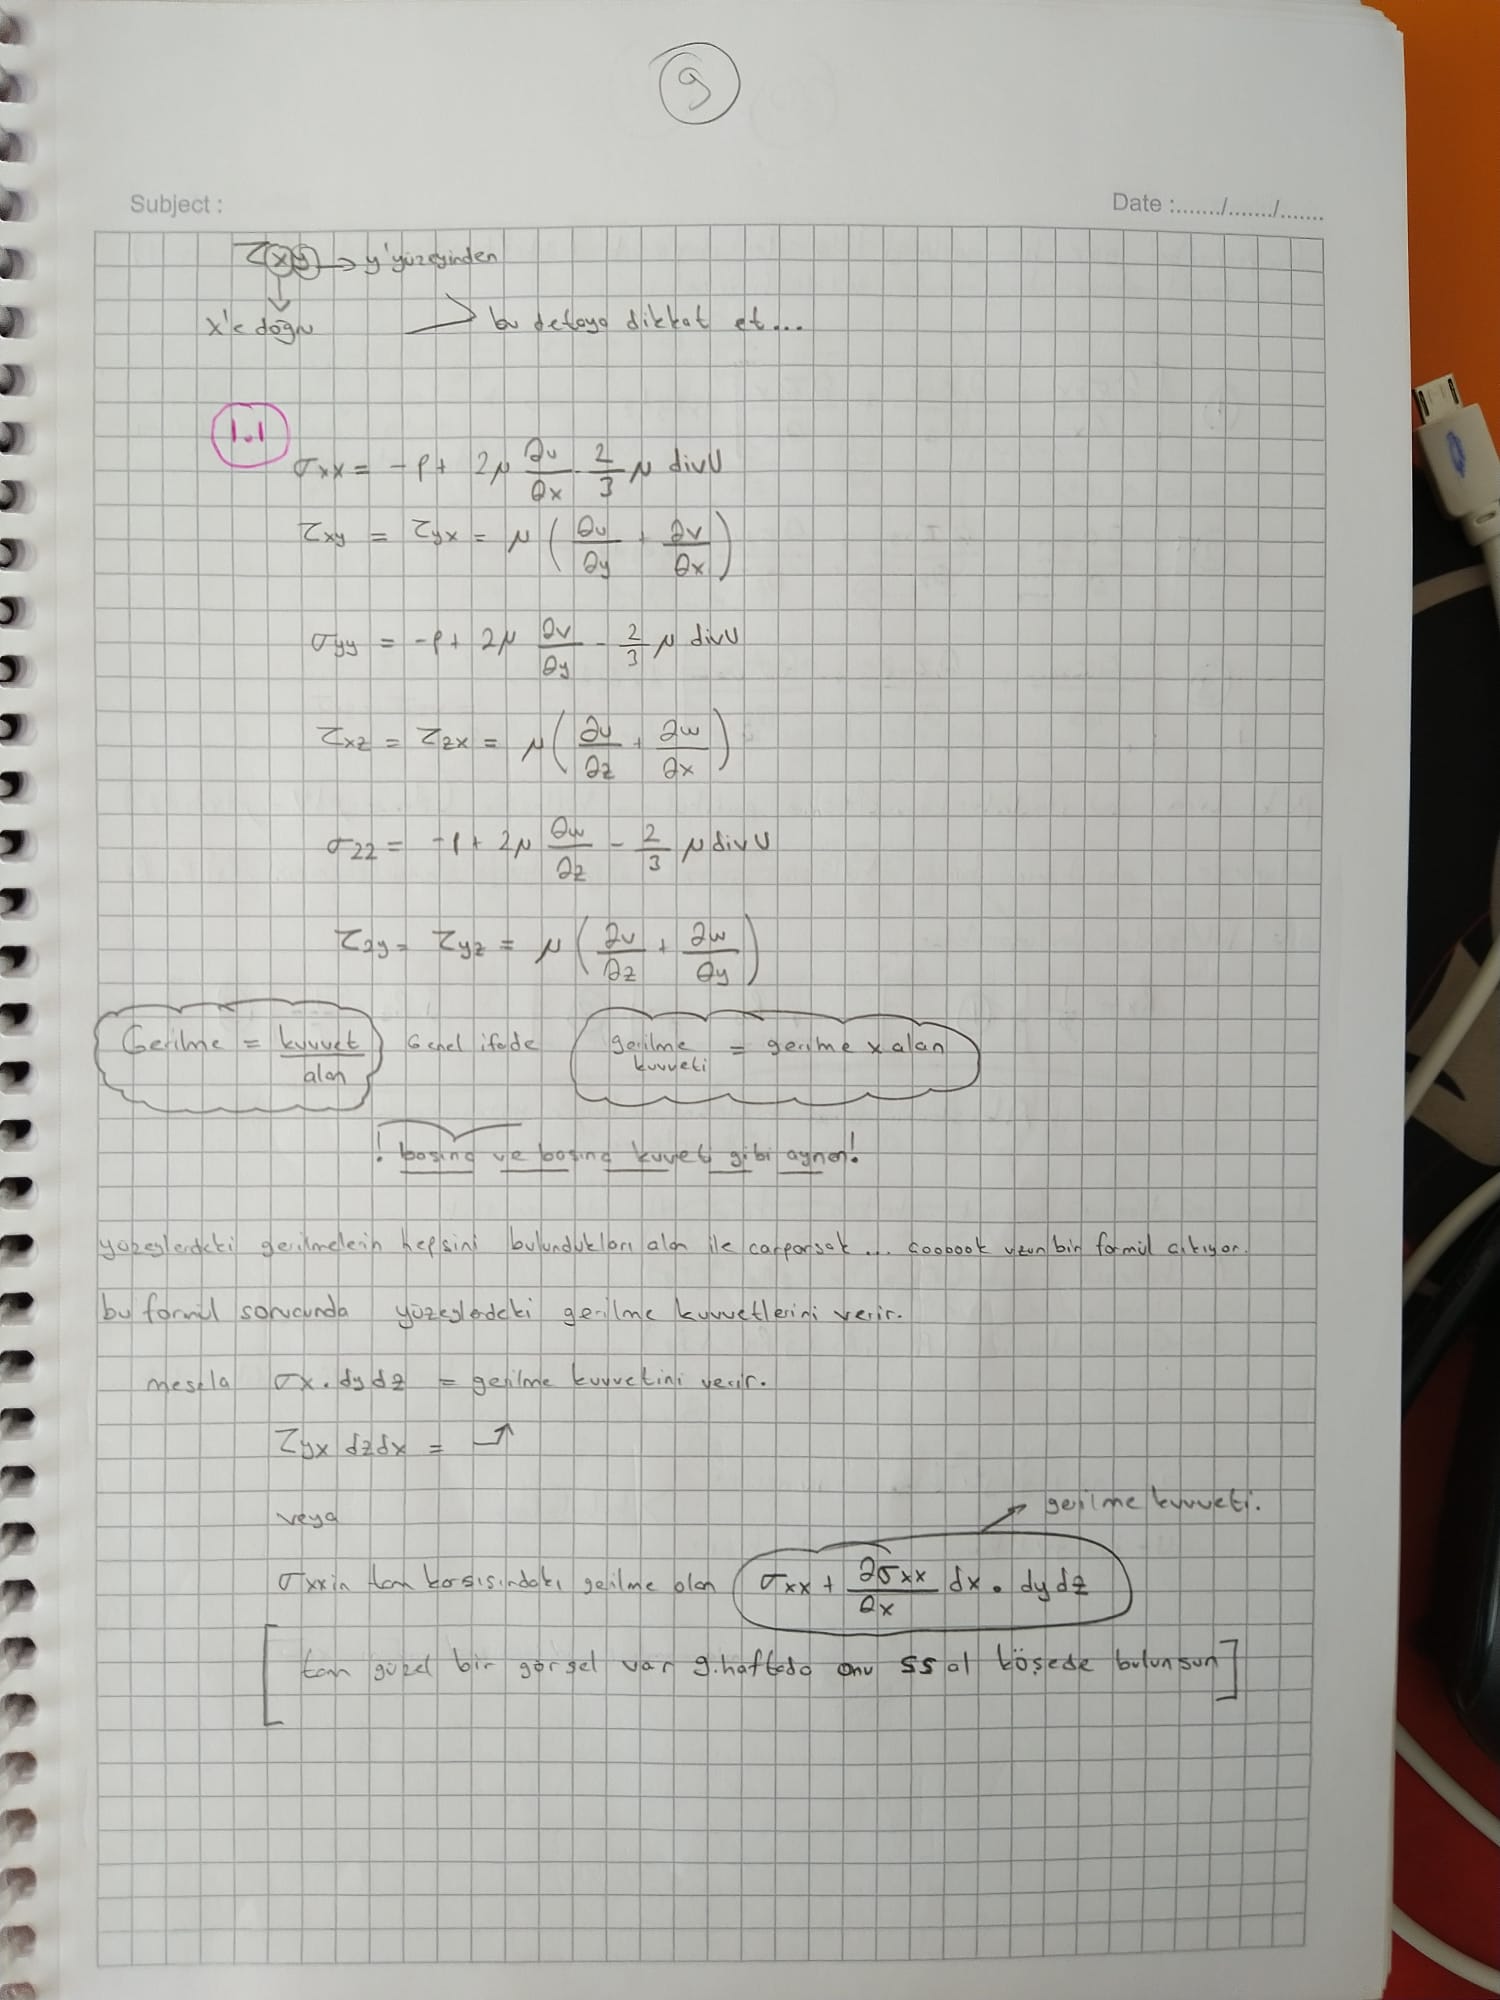 9
Subject :
Date :......./......./.......
τxy → y'yüzeyinden
x'e doğru bu detaya dikkat et...
1.1
σxx = -p + 2μ ∂u/∂x - 2/3 μ divU
τxy = τyx = μ (∂u/∂y + ∂v/∂x)
σyy = -p + 2μ ∂v/∂y - 2/3 μ divU
τxz = τzx = μ (∂u/∂z + ∂w/∂x)
σzz = -p + 2μ ∂w/∂z - 2/3 μ divU
τzy = τyz = μ (∂v/∂z + ∂w/∂y)
Gerilme = kuvvet/alan Genel ifade gerilme kuvveti = gerilme x alan
! basınç ve basınç kuvveti gibi aynen!
yüzeylerdeki gerilmelerin hepsini bulundukları alan ile çarparsak... çooook uzun bir formül çıkıyor.
bu formül sonucunda yüzeylerdeki gerilme kuvvetlerini verir.
mesela σx . dydz = gerilme kuvvetini verir.
τyx dzdx = ⤴
veya
gerilme kuvveti.
σxxin tam karşısındaki gerilme olan σxx + ∂σxx/∂x dx . dydz
[tam güzel bir görsel var 9.haftada onu ss al köşede bulunsun]